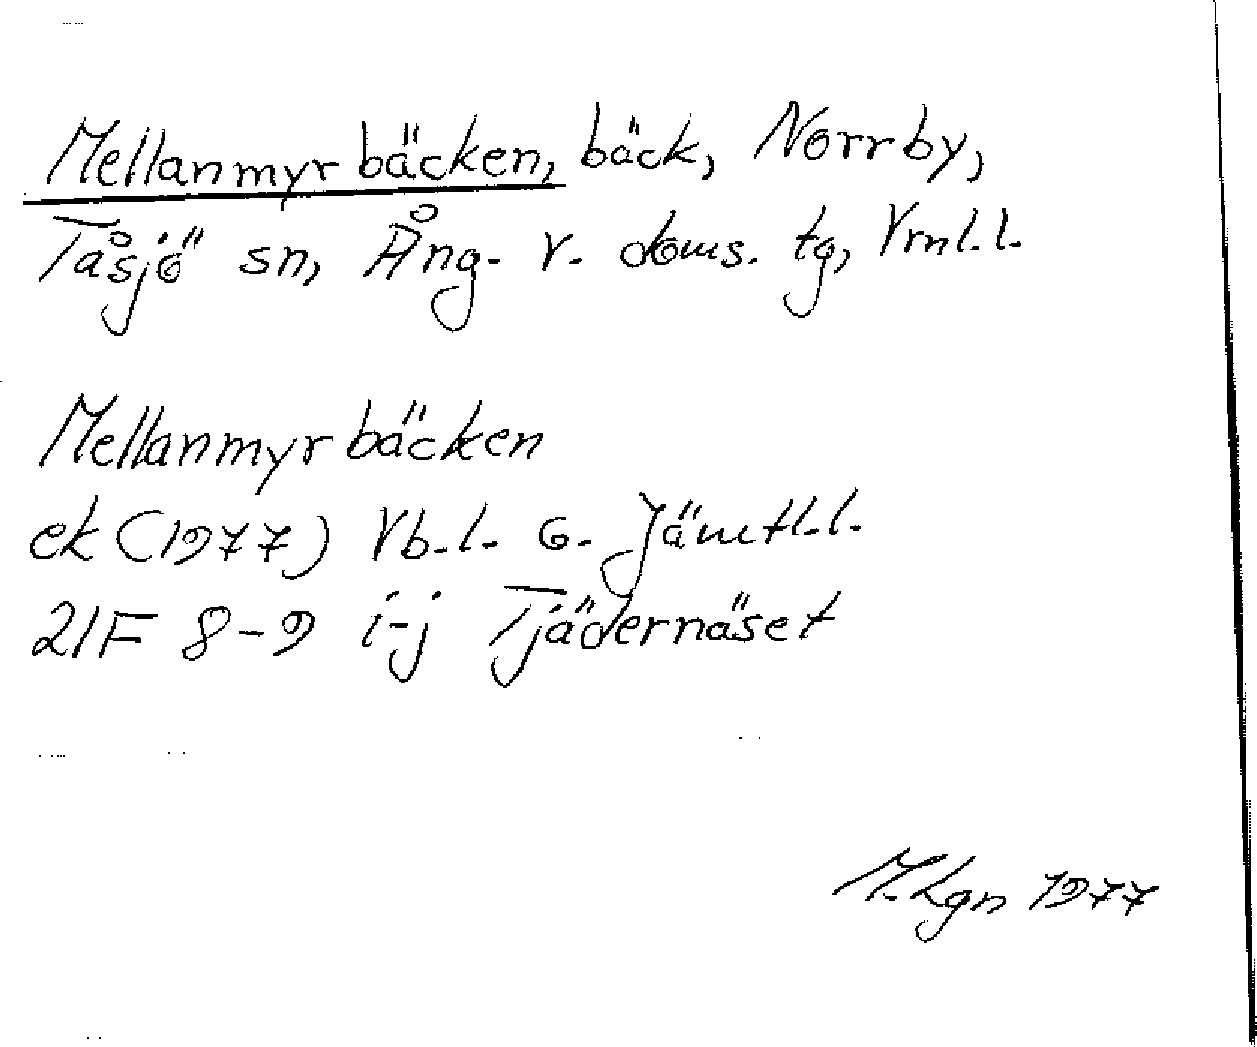 Mellanmyrbäcken, bäck, Norrby,
Tåsjö sn, Ång. v. doms. tg, Vrnl.l.
Mellanmyrbäcken
ek (1977) Vb.l. o. Jämtl.l.
21F 8-9 i-j Tjädernäset
M. Lgn 1977